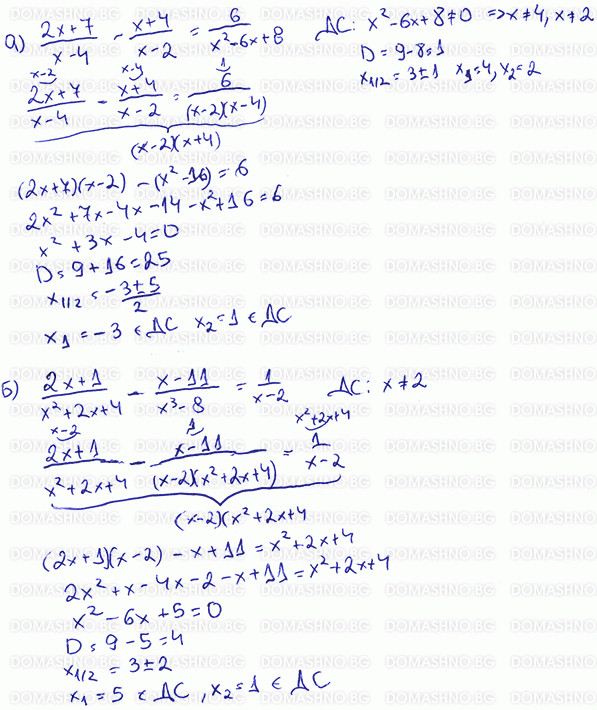 а) (2x+7)/(x-4) - (x+4)/(x-2) = 6/(x²-6x+8)   ДС: x²-6x+8≠0 => x≠4, x≠2
D = 9-8=1
x1/2 = 3±1   x₁=4, x₂=2
x-2   x-4   1
(2x+7)/(x-4) - (x+4)/(x-2) = 6/((x-2)(x-4))
(x-2)(x+4)
(2x+7)(x-2) - (x²-16) = 6
2x²+7x-4x-14-x²+16=6
x²+3x-4=0
D=9+16=25
x1/2 = (-3±5)/2
x₁=-3 ∈ ДС   x₂=1 ∈ ДС
б) (2x+1)/(x²+2x+4) - (x-11)/(x³-8) = 1/(x-2)   ДС: x≠2
x-2   1   x²+2x+4
(2x+1)/(x²+2x+4) - (x-11)/((x-2)(x²+2x+4)) = 1/(x-2)
(x-2)(x²+2x+4
(2x+1)(x-2) - x+11 = x²+2x+4
2x²+x-4x-2-x+11=x²+2x+4
x²-6x+5=0
D=9-5=4
x1/2 = 3±2
x₁=5 ∈ ДС, x₂=1 ∈ ДС
DOMASHNO.BG